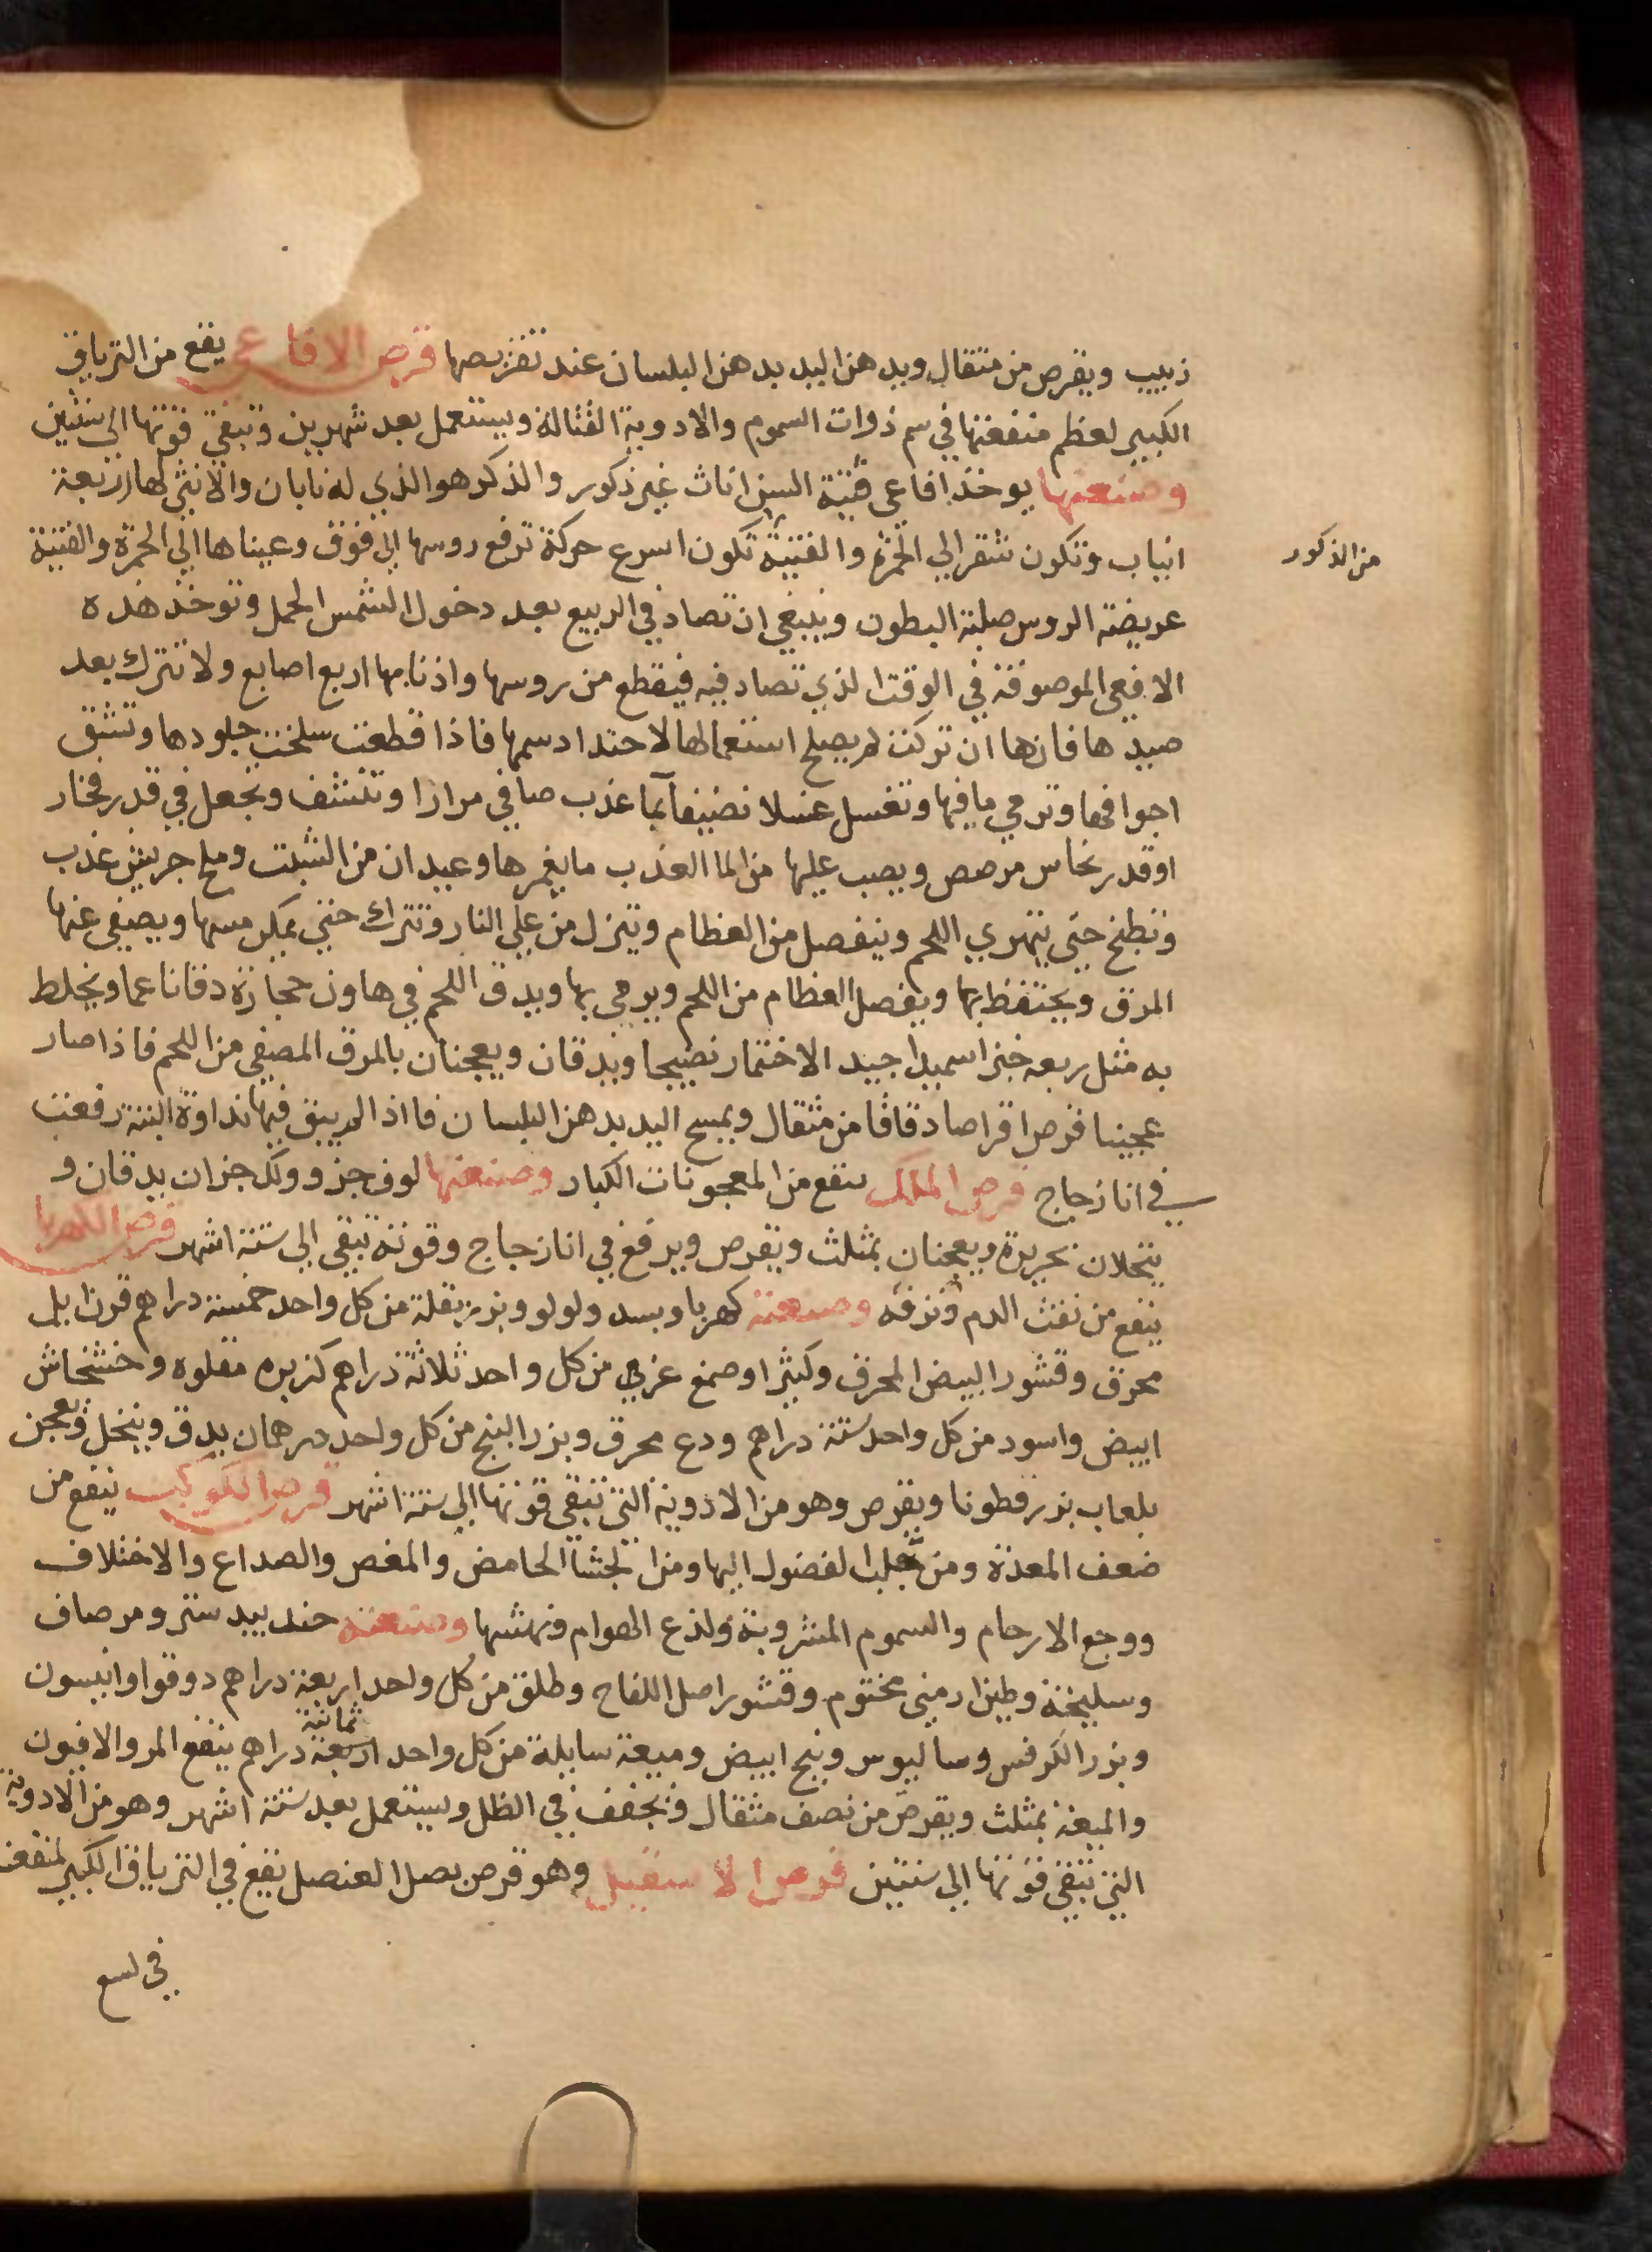 زبيب ويقرص من مثقال ويدهن اليد بدهن البلسان عند تقريصها قرص الافاعي يقع من الترياق
الكبير لعظم منفعتها في سم ذوات السموم والادوية القتالة ويستعمل بعد شهرين وتبقي قوتها الي سنتين
وصنعتها يوخذ افاعي فتية السن اناث غير ذكور والذكر هو الذي له نابان والانثي لها اربعة
انياب وتكون شقرا الي الحمرة والفتية تكون اسرع حركة ترفع روسها الي فوق وعيناها الي الحمرة والفتية
من الذكور
عريضة الروس صلبة البطون وينبغي ان تصاد في الربيع بعد دخول الشمس الحمل وتوخذ هذه
الافعي الموصوفة في الوقت الذي تصاد فيه فيقطع من روسها واذنابها اربع اصابع ولا تترك بعد
صيدها فانها ان تركت لم يصلح استعمالها لاحتداد سمها فاذا قطعت سلخت جلودها وتشق
اجوافها وترمي ما فيها وتغسل غسلا نضيفا بما عذب صافي مرارا وتنشف وتجعل في قدر فخار
او قدر نحاس مرصص ويصب عليها من الما العذب ما يغمرها وعيدان من الشبت وملح جريش عذب
وتطبخ حتي يتهري اللحم وينفصل من العظام وينزل من علي النار وتترك حتي يمكن مسها ويصفي عنها
المرق ويحتفظ بها ويفصل العظام من اللحم ويرمي بها ويدق اللحم في هاون حجارة دقا ناعما ويخلط
به مثل ربعه خبز اسميدا جيد الاختمار نضيجا ويدقان ويعجنان بالمرق المصفي من اللحم فاذا صار
عجينا قرص اقراصا دقاقا من مثقال ويمسح اليد بدهن البلسان فااذا لم يبق فيها نداوة البتة رفعت
في انا زجاج قرص الملك ينفع من المعجونات الكبار وصنعتها لوف جزو ولك جزان يدقان و
ينخلان بحريرة ويعجنان بمثلث ويقرص ويرفع في انا زجاج وقوته تبقي الي ستة اشهر قرص الكهربا
ينفع من نفث الدم ونزفه وصنعته كهربا وبسد ولولو وبزر بقلة من كل واحد خمسة دراهم قرن ايل
محرق وقشور البيض المحرق وكثيرا وصمغ عربي من كل واحد ثلاثة دراهم كزبره مقلوه وخشخاش
ابيض واسود من كل واحد ستة دراهم ودع محرق وبزر البنج من كل واحد درهمان يدق وينخل ويعجن
بلعاب بزر قطونا ويقرص وهو من الادوية التي تبقي قوتها الي ستة اشهر قرص الكوكب ينفع من
ضعف المعدة ومن تحلب الفضول اليها ومن الجشا الحامض والمغص والصداع والاختلاف
ووجع الارحام والسموم المشروبة ولدغ الهوام ونهشها وصنعته جندبيدستر ومر صاف
وسليخة وطين ارميني مختوم وقشور اصل اللفاح وطلق من كل واحد اربعة دراهم دوقوا وانيسون
وبزر الكرفس وساليوس وبنج ابيض وميعة سايلة من كل واحد اربعة ثمانية دراهم ينقع المر والافيون
والميعة بمثلث ويقرص من نصف مثقال ويجفف في الظل ويستعمل بعد ستة اشهر وهو من الادوية
التي تبقي قوتها الي سنتين قرص الاسقيل وهو قرص بصل العنصل يقع في الترياق الكبير لمنفعته
في لسع